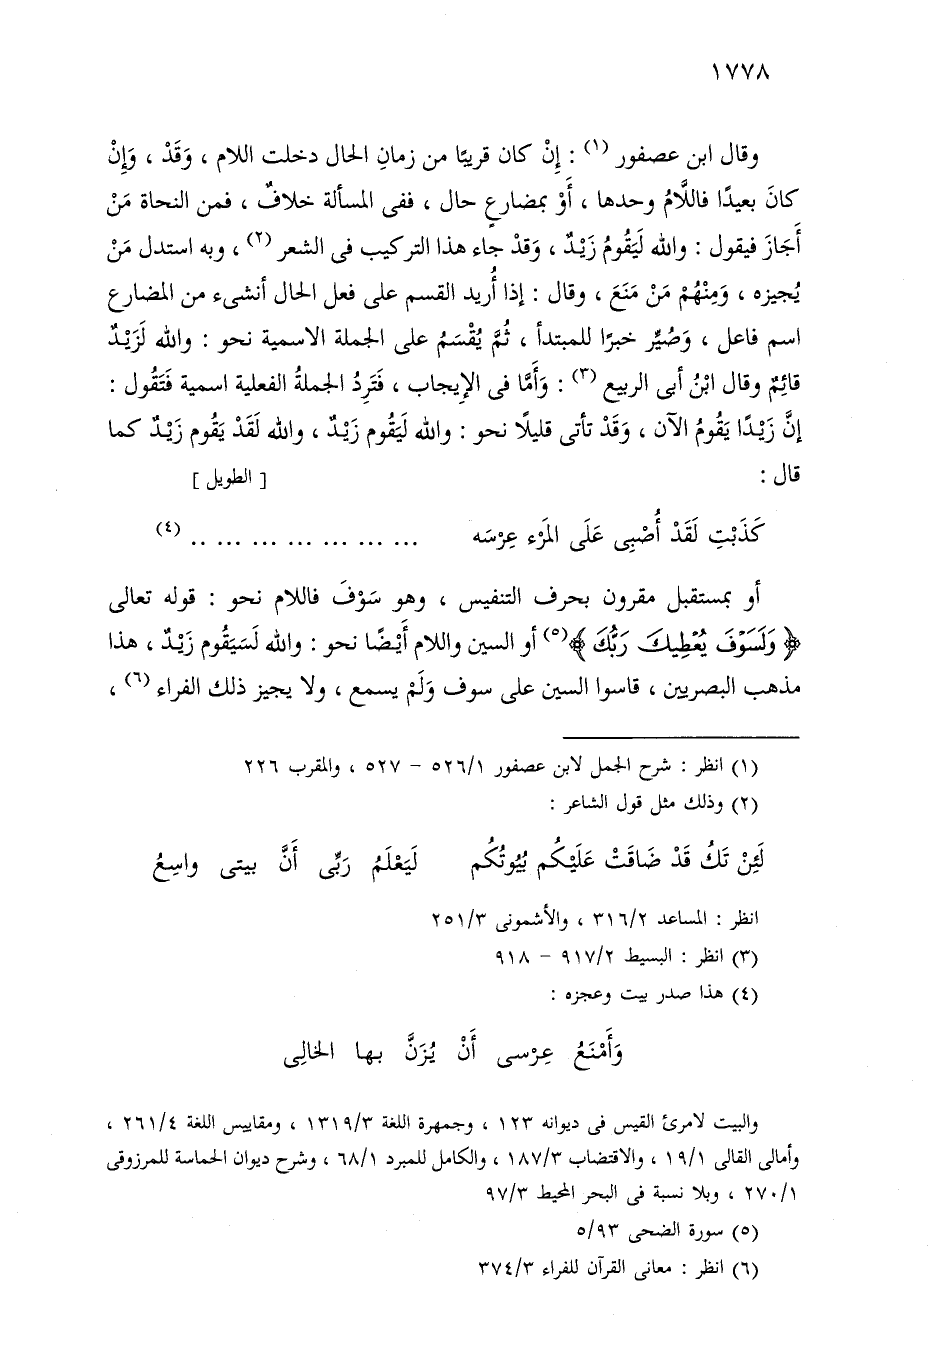 ١٧٧٨
وقال ابن عصفور (١) : إِنْ كان قريبًا من زمانِ الحال دخلت اللام ، وَقَدْ ، وَإِنْ
كانَ بعيدًا فاللَّامُ وحدها ، أَوْ بمضارعٍ حال ، ففى المسألة خلافٌ ، فمن النحاة مَنْ
أَجَازَ فيقول : والله لَيَقُومُ زَيْدٌ ، وَقدْ جاء هذا التركيب فى الشعر (٢) ، وبه استدل مَنْ
يُجيزه ، وَمِنْهُمْ مَنْ مَنَعَ ، وقال : إذا أُريد القسم على فعل الحال أنشىء من المضارع
اسم فاعل ، وَصُيِّر خبرًا للمبتدأ ، ثُمَّ يُقْسَمُ على الجملة الاسمية نحو : والله لَزَيْدٌ
قائِمٌ وقال ابْنُ أبى الربيع (٣) : وَأَمَّا فى الإيجاب ، فَتَرِدُ الجملةُ الفعلية اسمية فَتَقُول :
إنَّ زَيْدًا يَقُومُ الآن ، وَقَدْ تأتى قليلًا نحو : والله لَيَقُوم زَيْدٌ ، والله لَقَدْ يَقُوم زَيْدٌ كما
قال : [ الطويل ]
كَذَبْتِ لَقَدْ أُصْبِى عَلَى المَرْءِ عِرْسَه ... ... ... ... ... ... ... .. (٤)
أو بمستقبل مقرون بحرف التنفيس ، وهو سَوْفَ فاللام نحو : قوله تعالى
﴿ وَلَسَوْفَ يُعْطِيكَ رَبُّكَ ﴾(٥) أو السين واللام أَيْضًا نحو : والله لَسَيَقُوم زَيْدٌ ، هذا
مذهب البصريين ، قاسوا السين على سوف وَلَمْ يسمع ، ولا يجيز ذلك الفراء (٦) ،
(١) انظر : شرح الجمل لابن عصفور ٥٢٦/١ – ٥٢٧ ، والمقرب ٢٢٦
(٢) وذلك مثل قول الشاعر :
لَئِنْ تَكُ قَدْ ضَاقَتْ عَلَيْكُم بُيُوتُكُم لَيَعْلَمُ رَبِّى أَنَّ بيتى واسِعُ
انظر : المساعد ٣١٦/٢ ، والأشمونى ٢٥١/٣
(٣) انظر : البسيط ٩١٧/٢ – ٩١٨
(٤) هذا صدر بيت وعجزه :
وَأَمْنَعُ عِرْسى أَنْ يُزَنَّ بها الخالِى
والبيت لامرئ القيس فى ديوانه ١٢٣ ، وجمهرة اللغة ١٣١٩/٣ ، ومقاييس اللغة ٢٦١/٤ ،
وأمالى القالى ١٩/١ ، والاقتضاب ١٨٧/٣ ، والكامل للمبرد ٦٨/١ ، وشرح ديوان الحماسة للمرزوقى
٢٧٠/١ ، وبلا نسبة فى البحر المحيط ٩٧/٣
(٥) سورة الضحى ٥/٩٣
(٦) انظر : معانى القرآن للفراء ٣٧٤/٣